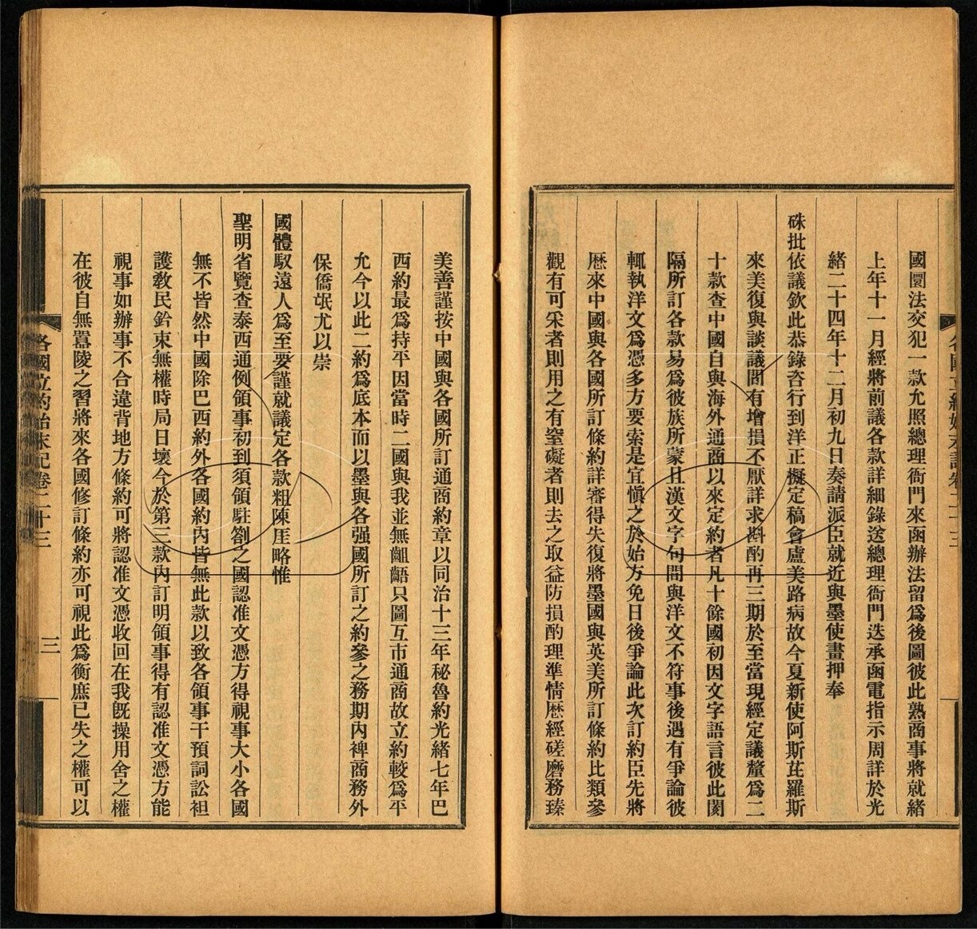 國圜法交犯一款允照總理衙門來函辦法留爲後圖彼此熟商事將就緒
上年十一月經將前議各款詳細錄送總理衙門迭承函電指示周詳於光
緒二十四年十二月初九日奏請派臣就近與墨使畫押奉
硃批依議欽此恭錄咨行到洋正擬定稿會盧美路病故今夏新使阿斯芘羅斯
來美復與談議間有增損不厭詳求斟酌再三期於至當現經定議釐爲二
十款查中國自與海外通商以來定約者凡十餘國初因文字語言彼此閡
隔所訂各款易爲彼族所蒙且漢文字句間與洋文不符事後遇有爭論彼
輒執洋文爲憑多方要索是宜愼之於始方免日後爭論此次訂約臣先將
歷來中國與各國所訂條約詳審得失復將墨國與英美所訂條約比類參
觀有可采者則用之有窒礙者則去之取益防損酌理準情歷經磋磨務臻
美善謹按中國與各國所訂通商約章以同治十三年秘魯約光緒七年巴
西約最爲持平因當時二國與我並無齟齬只圖互市通商故立約較爲平
允今以此二約爲底本而以墨與各强國所訂之約參之務期內裨商務外
保僑氓尤以崇
國體馭遠人爲至要謹就議定各款粗陳厓略惟
聖明省覽查泰西通例領事初到須領駐劄之國認准文憑方得視事大小各國
無不皆然中國除巴西約外各國約內皆無此款以致各領事干預詞訟袒
護敎民鈐束無權時局日壞今於第三款內訂明領事得有認准文憑方能
視事如辦事不合違背地方條約可將認准文憑收回在我旣操用舍之權
在彼自無囂陵之習將來各國修訂條約亦可視此爲衡庶已失之權可以
各國立約始末記卷二十三
三